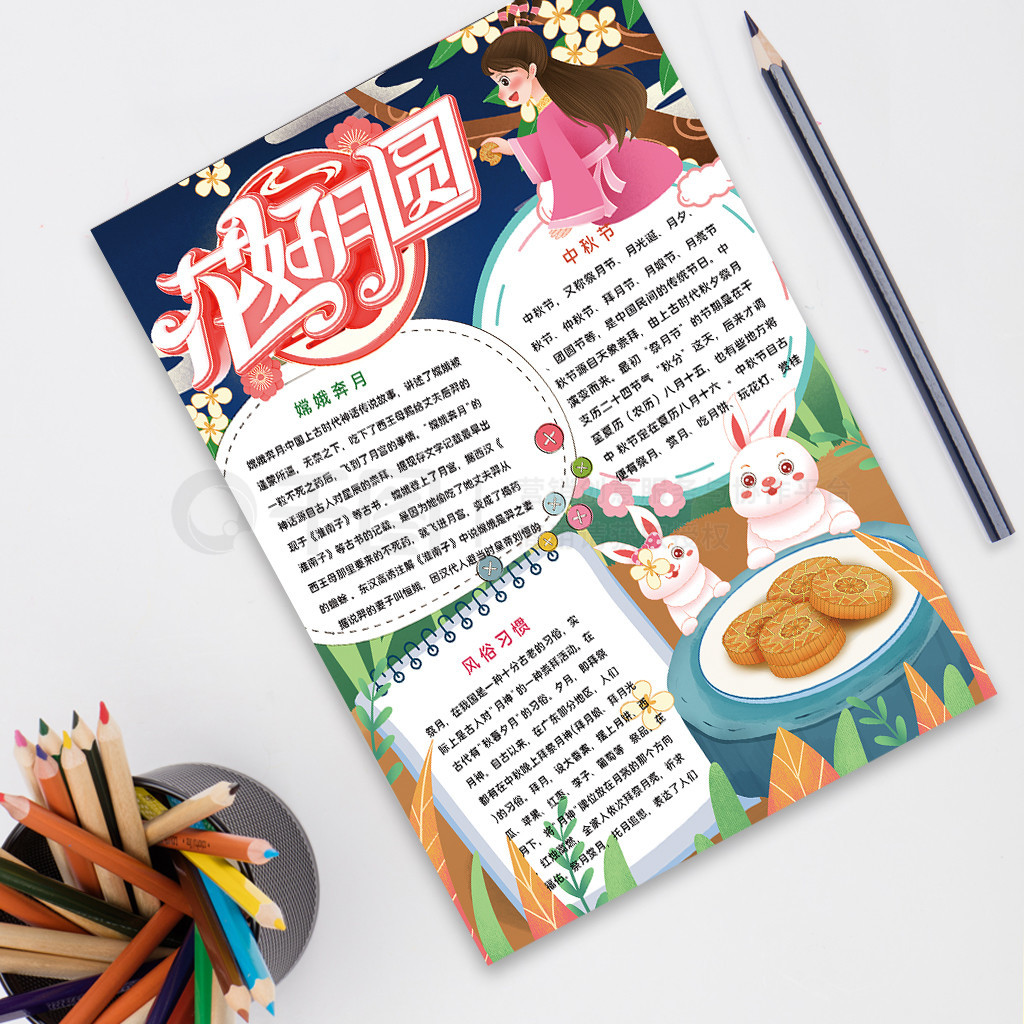 花好月圆
中秋节
中秋节，又称祭月节、月光诞、月夕、
秋节、仲秋节、拜月节、月娘节、月亮节
团圆节等，是中国民间的传统节日。中
秋节源自天象崇拜，由上古时代秋夕祭月
演变而来。最初“祭月节”的节期是在干
支历二十四节气“秋分”这天，后来才调
至夏历（农历）八月十五，也有些地方将
中秋节定在夏历八月十六。中秋节自古
便有祭月、赏月、吃月饼、玩花灯、赏桂
嫦娥奔月
嫦娥奔月中国上古时代神话传说故事，讲述了嫦娥被
逢蒙所逼，无奈之下，吃下了西王母赐给丈夫后羿的
一粒不死之药后，飞到了月宫的事情。“嫦娥奔月”的
神话源自古人对星辰的崇拜，据现存文字记载最早出
现于《淮南子》等古书。嫦娥登上了月宫，据西汉《
淮南子》等古书的记载，是因为她偷吃了她丈夫羿从
西王母那里要来的不死药，就飞进月宫，变成了捣药
的蟾蜍．东汉高诱注解《淮南子》中说嫦娥是羿之妻
据说羿的妻子叫恒娥，因汉代人避当时皇帝刘恒的
风俗习惯
祭月，在我国是一种十分古老的习俗，实
际上是古人对“月神”的一种崇拜活动。在
古代有“秋暮夕月”的习俗。夕月，即拜祭
月神。自古以来，在广东部分地区，人们
都有在中秋晚上拜祭月神(拜月娘、拜月光
)的习俗。拜月，设大香案，摆上月饼、西
瓜、苹果、红枣、李子、葡萄等 祭品。在
月下，将“月神”牌位放在月亮的那个方向
红烛高燃，全家人依次拜祭月亮，祈求
福佑。祭月赏月，托月追思，表达了人们